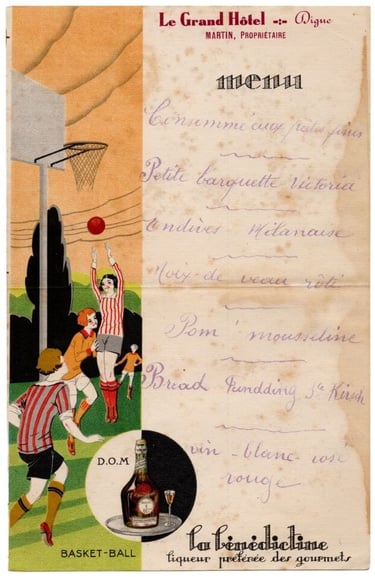 Le Grand Hôtel -:- Digne
MARTIN, PROPRIÉTAIRE
menu
Consommé aux pâtes fines
Petite barquette Victoria
Endives Milanaise
Noix-de veau rôti
Pom' mousseline
Bread Pundding Sce Kirsch
vin - blanc - rosé
rouge
D.O.M
BASKET-BALL
la bénédictine
liqueur préférée des gourmets